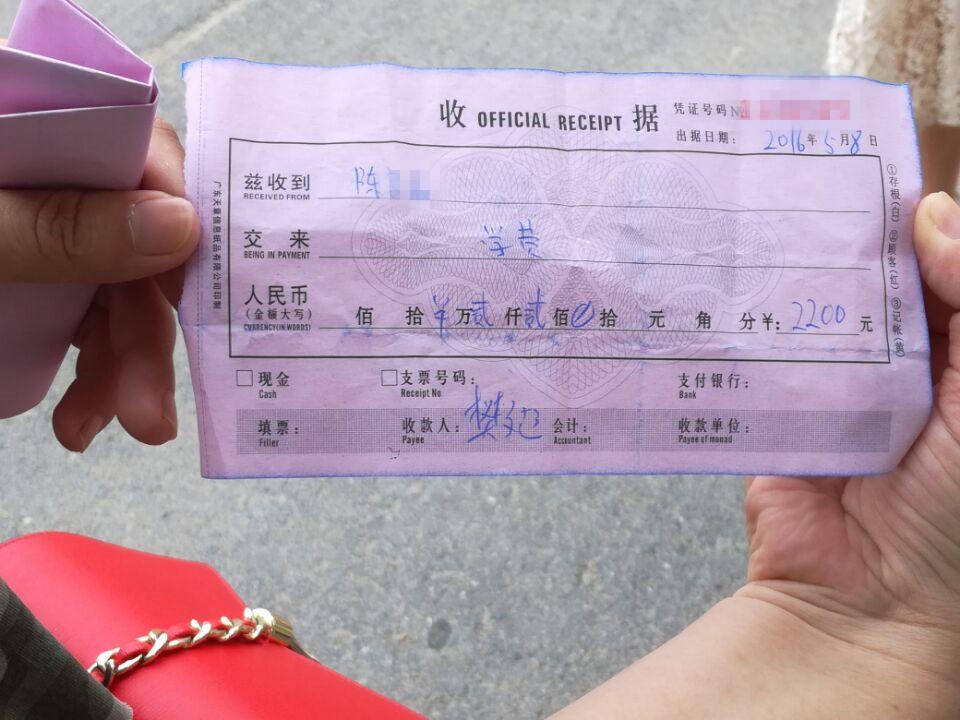 收 OFFICIAL RECEIPT 据
凭证号码 №
出据日期： 2016年5月8日
兹收到 陈
RECEIVED FROM
交 来 学费
BEING IN PAYMENT
人民币
（金额大写） 佰 拾¥万贰仟贰佰0拾 元 角 分¥：2200元
CURRENCY(IN WORDS)
现金 支票号码： 支付银行：
Cash Receipt No Bank
填票： 收款人： 樊 会计： 收款单位：
Filler Payee Accountant Payee of monad
广东天章信息纸品有限公司印制
①存根（白）②顾客（红）③记帐（黄）